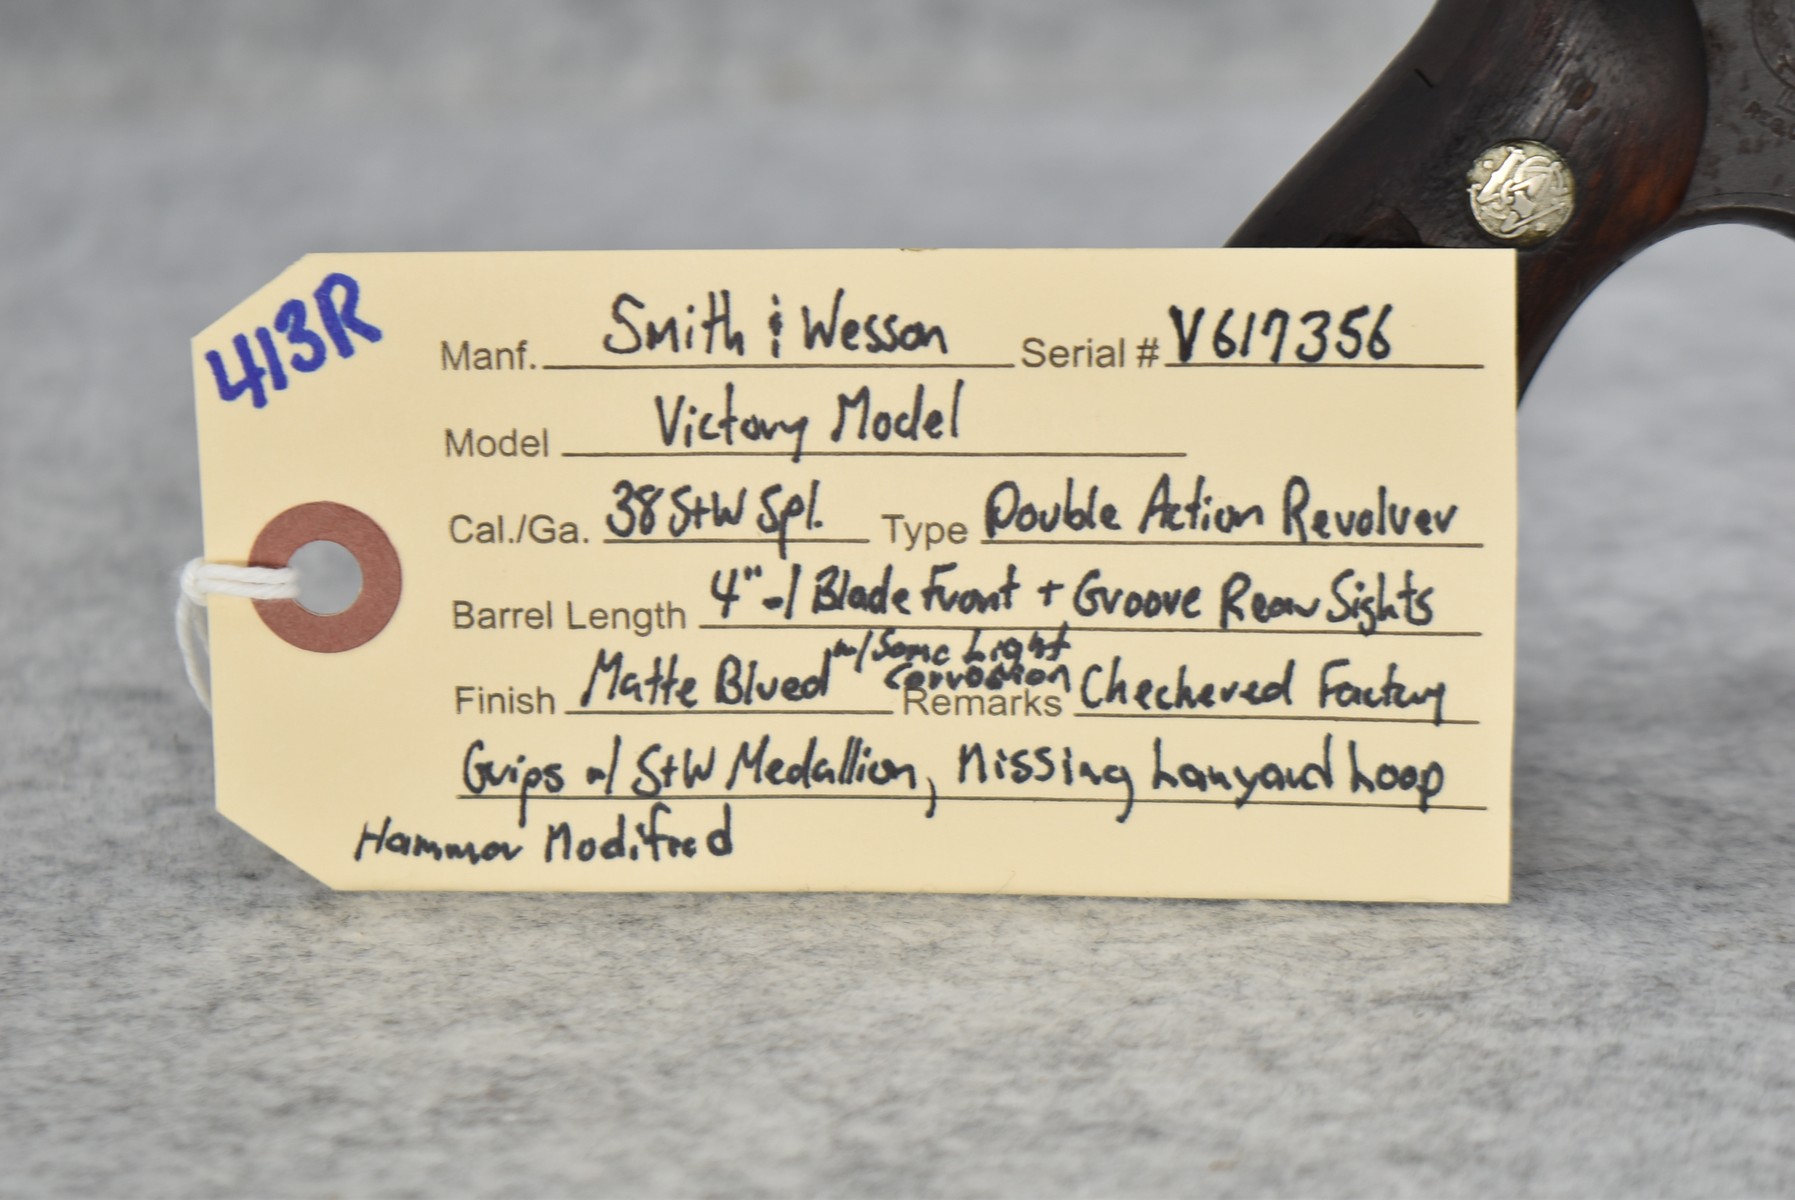 413R
Manf. Smith & Wesson Serial # V617356
Model Victory Model
Cal./Ga. 38 S+W Spl. Type Double Action Revolver
Barrel Length 4" w/ Blade Front + Groove Rear Sights
Finish Matte Blued w/ Some Light Corrosion Remarks Checkered Factory
Grips w/ S+W Medallion, Missing Lanyard Loop
Hammer Modified